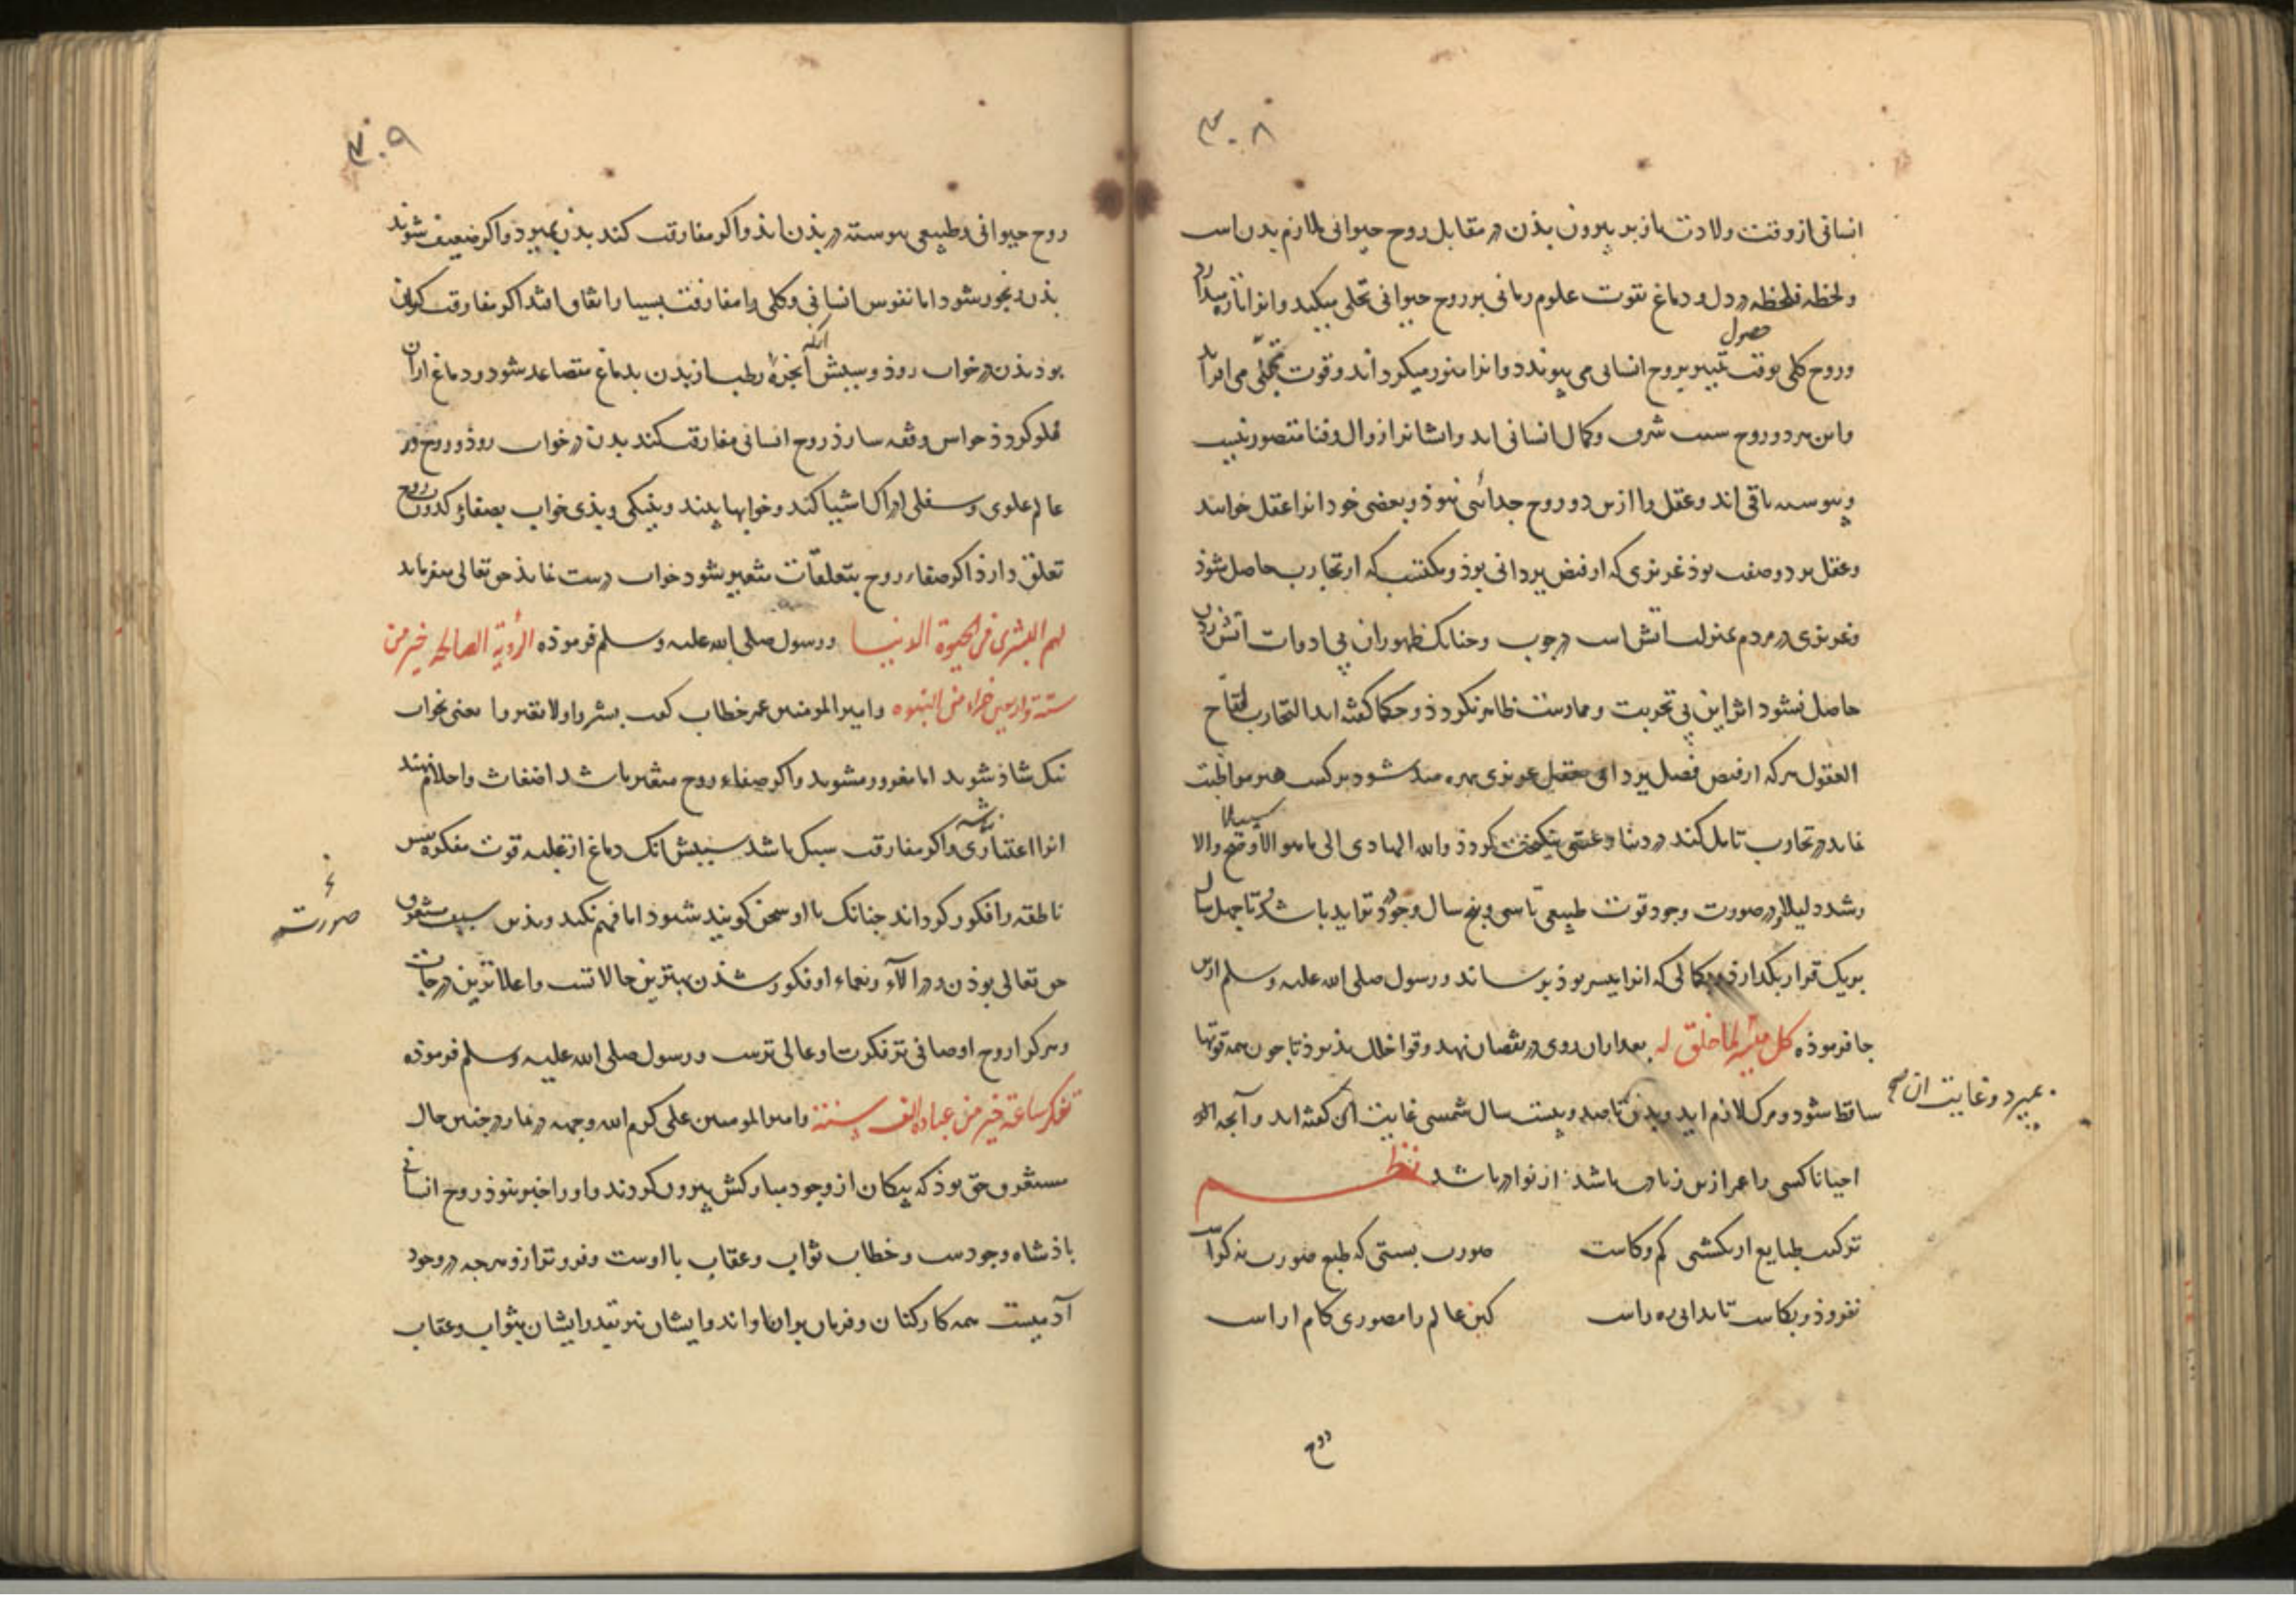 ۳۰۸
انسانی از وقت ولادت باز بر بیرون بذن در مقابل روح حیوانی ملازم بدن است
و لحظه فلحظه در دل و دماغ بقوت علوم ربانی بر روح حیوانی تجلی میکند و انرا تازه میدارد
حصول
و روح کلی بوقت تمییز بروح انسانی می پیوندد و انرا منور میکرداند و قوت تجلّی می افزاید
و این هر دو روح سبب شرف و کمال انسانی اند و ایشانرا زوال و فنا متصور نیست
و پیوسته باقی اند و عقل را ازین دو روح جدائی نبوذ و بعضی خود انرا عقل خوانند
و عقل بر دو صفت بوذ غریزی که از فیض یزدانی بوذ و مکتسب که از تجارب حاصل شوذ
و غریزی در مردم بمنزلت اتش است در چوب و چنانک ظهور ان بی ادوات اتش زدن
حاصل نشود اثر این بی تجربت و ممارست ظاهر نکردذ و حکما کفته اند التجارب لقاح
العقول هرکه از فیض فضل یزدانی بعقل غریزی بهره مند شود بر کسب هنر مواظبت
سبیلا
نماید در تجارب تامل کند در دنیا و عقبی نیکبخت کردذ والله الهادی الی ما هو الاوضح والا
رشد دلیلا و در صورت وجود قوت طبیعی تا سی و پنج سال وجود تزاید باشد و تا چهل سال
بریک قرار بکذارذ و بکمالی که انرا میسر بوذ برساند و رسول صلی الله علیه و سلم ازین
جا فرموذه کل میسر لما خلق له بعد ازان روی در نقصان نهد و قوا خلل پذیرذ تا چون همه قوتها
ساقط شود و مرک لازم اید و بدن تا صد و بیست سال شمسی غایت آن کفته اند و آنچه اکر
بمیرد و غایت ان صح
احیانا کسی را عمر ازین زیادت باشد از نوادر باشد نظم
ترکیب طبایع ار نکشتی کم و کاست صورت بستی که طبع صورت نه کواست
نفروذ و بکاست تا بدانی ره راست کین عالم را مصوری کام اراست
روح
۳۰۹
روح حیوانی و طبیعی پیوسته در بذن اند و اکر مفارقت کند بدن بمیرذ و اکر ضعیف شوند
بذن رنجور شود اما نفوس انسانی و کلی را مفارقت بسیار اتفاق افتد اکر مفارقت کران
انکه
بود بذن در خواب روذ و سببش ابخرهٔ رطب از بدن بدماغ متصاعد شود و دماغ ازان
مملو کردذ حواس وقفه سازذ روح انسانی مفارقت کند بدن در خواب روذ و روح در
عالم علوی و سفلی ادراک اشیا کند و خوابها بیند و نیکی و بذی خواب بصفا و کدورت روح
تعلق دارذ اکر صفاء روح بتعلقات متغیر نشود خواب درست نماید حق تعالی میفرماید
لهم البشری فی الحیوة الدنیا و رسول صلی الله علیه و سلم فرموذه الرؤیة الصالحة خیر من
ستة و اربعین جزاء من النبوه و امیر المومنین عمر خطاب کفت بشروا ولا تغتروا یعنی بخواب
نیک شاذ شوید اما مغرور مشوید و اکر صفاء روح متغیر باشد اضغاث و احلام نهند
انرا اعتباری نباشد و اکر مفارقت سبک باشد سببش انک دماغ از غلبه قوت مفکوره پس
ناطقه را فکور کرداند چنانک با او سخن کویند شنود اما فهم نکند و بذین سبب مستغرق
صورت
حق تعالی بوذن و در الآء و نعماء او فکور شذن بهترین حالاتست و اعلاترین درجات
و هر کرا روح او صافی تر فکرت او عالی ترست و رسول صلی الله علیه و سلم فرموذه
تفکر ساعة خیر من عبادة الف سنة و امیر المومنین علی کرم الله وجهه در نماز در چنین حال
مستغرق حق بوذ که پیکان از وجود مبارکش بیرون کردند و او را خبر نبوذ روح انسانی
باذشاه وجودست و خطاب ثواب و عقاب با اوست و فروتر ازو هرچه در وجود
آدمیست همه کارکنان و فرمان بران او اند و ایشان نیز بقدر ایشان بثواب و عقاب